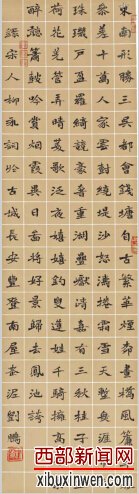 東南形勝三吳都會錢塘自古繁華煙柳畫橋風簾翠
幕參差十萬人家雲樹繞堤沙怒濤捲霜雪天塹無涯市列
珠璣戶盈羅綺競豪奢重湖疊巘清嘉有三秋桂子十里
荷花羌管弄晴菱歌泛夜嬉嬉釣叟蓮娃千騎擁高牙乘
醉聽簫鼓吟賞煙霞異日圖將好景歸去鳳池誇
錄宋人柳永詞於古城長安豐登南屋劉鵬
西部新闻网
www.xibuxinwen.com